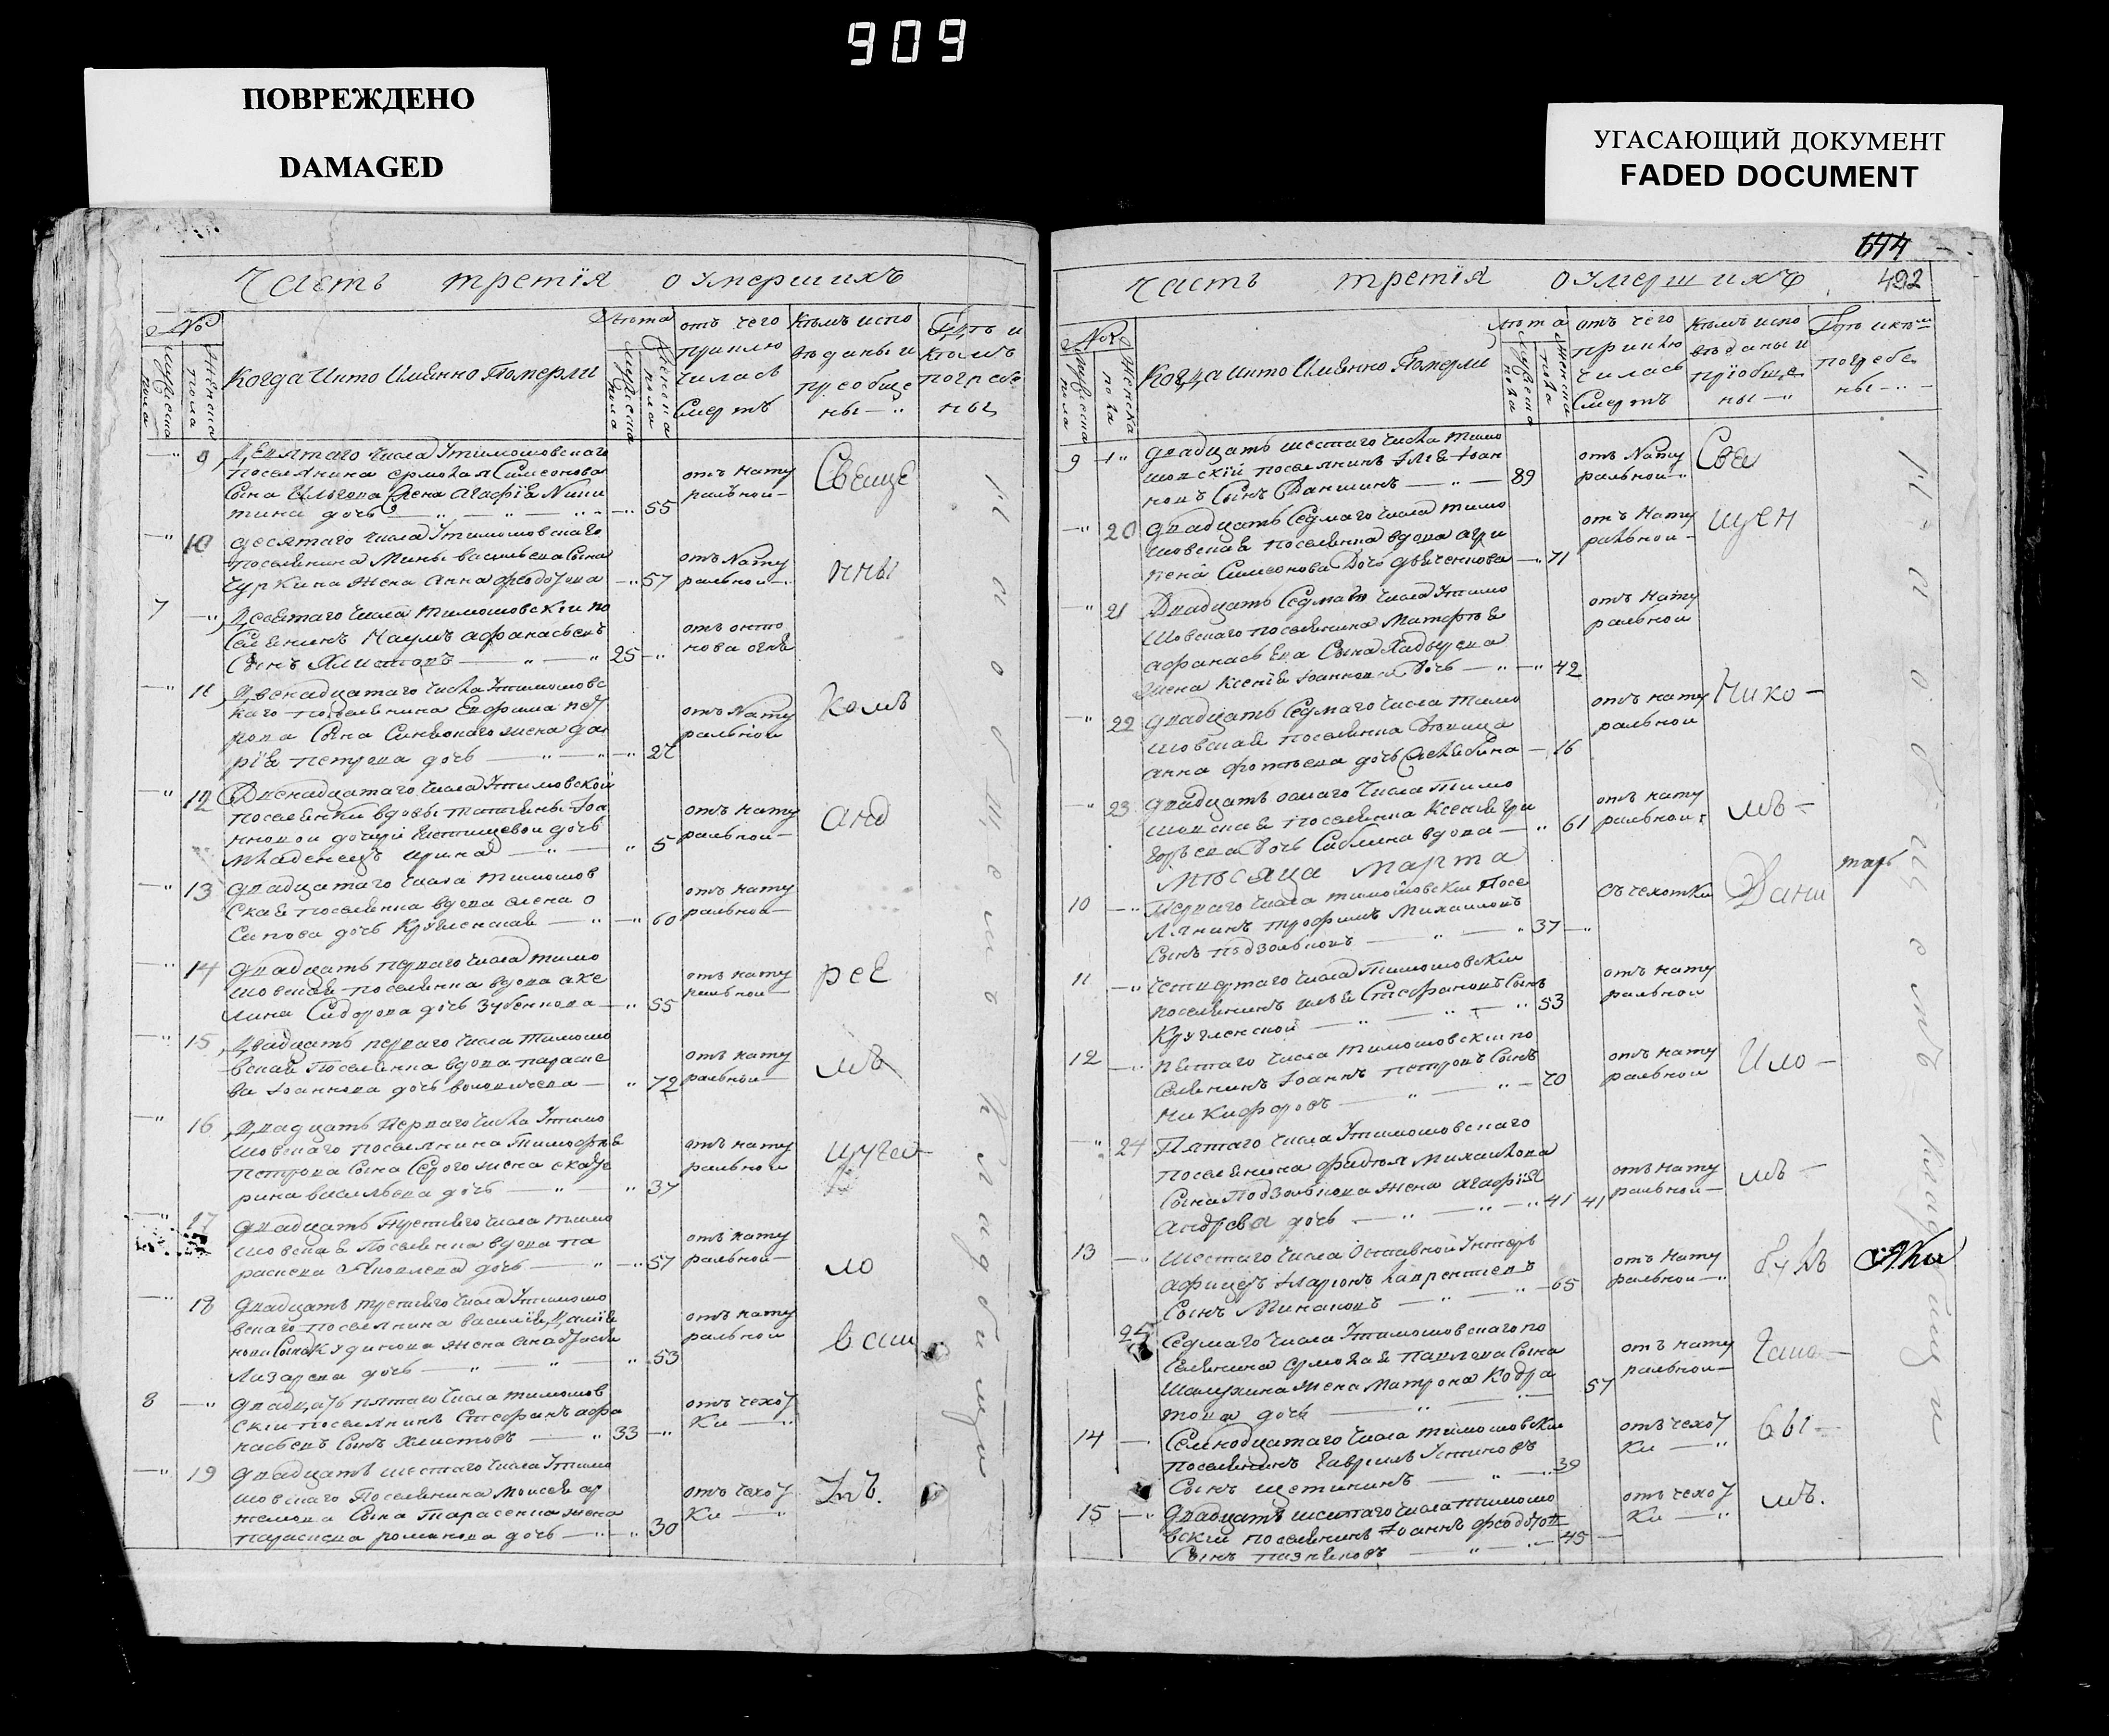 909
ПОВРЕЖДЕНО
DAMAGED
УГАСАЮЩИЙ ДОКУМЕНТ
FADED DOCUMENT
Часть третія о умершихъ
№
Мужеска пола
Женска пола
Когда и кто имянно померли
Лѣта
Мужеска пола
Женска пола
отъ чего
приклю
чилась
смерть
Кѣмъ испо
вѣданы и
пріобще
ны
Гдѣ и
кѣмъ
погребе
ны
9 Девятаго числа Утимошовскаго
поселянина ермолая Симеонова
Сына жена агафія Ники
тина дочь 55
отъ нату
ральной
Свеще
10 десятаго числа Утимошовскаго
поселянина Мины васильева Сына
Чуркина жена Анна федотова 57
отъ нату
ральной
нны
7 Десятаго числа тимошовскій по
селянинъ Наумъ афанасьевъ
Сынъ Хлистовъ 25
отъ онто
нова огня
11 Двенадцатаго числа Утимошовс
каго поселянина Ефима пет
рова Сына Синявского жена да
рія петрова дочь 27
отъ нату
ральной
комъ
12 Двенадцатаго числа Утимовской
поселянки вдовы татіяны Іоа
нновой дочери дочь
младенецъ ирина 5
отъ нату
ральной
анд
13 двадцатаго числа тимошов
ская поселянка вдова елена о
сипова дочь Кругленская 60
отъ нату
ральной
14 двадцать перваго числа тимо
шовская поселянка вдова аку
лина Сидорова дочь Зубенкова 55
отъ нату
ральной
рее
15 Двадцать перваго числа тимошо
вская поселянка вдова параске
ва Іоаннова дочь 72
отъ нату
ральной
мъ
16 Двадцать перваго числа Утимо
шовскаго поселянина тимофея
петрова Сына Седого жена екате
рина васильева дочь 37
отъ нату
ральной
17 двадцать третьяго числа тимо
шовская поселянка вдова па
раскева Яковлева дочь 57
отъ нату
ральной
ло
18 двадцать третьяго числа Утимошо
вскаго поселянина василія Дани
лова Сына Кудинова жена анастасія
Лазарева дочь 53
отъ нату
ральной
8 двадцать пятаго числа тимошов
скій поселянинъ Стефанъ афа
насьевъ Сынъ Хлистовъ 33
отъ чехот
ки
19 двадцать шестаго числа Утимо
шовскаго поселянина Моисея ар
темова Сына Тарасенка жена
параскева романова дочь 30
отъ чехот
ки
На общемъ кладбищи
644
492
Часть третія о умершихъ
№
Мужеска пола
Женска пола
Когда и кто имянно померли
Лѣта
Мужеска пола
Женска пола
отъ чего
приклю
чилась
смерть
Кѣмъ испо
вѣданы и
пріобще
ны
Гдѣ и кѣмъ
погребе
ны
9 двадцать шестаго числа тимо
шовскій поселянинъ Іоан
новъ Сынъ Даншинъ 89
отъ нату
ральной
Свя
20 двадцать седмаго числа тимо
шовская поселянка вдова агри
пена Симеонова дочь 71
отъ нату
ральной
щен
21 Двадцать седмаго числа Утимо
шовскаго поселянина Матфея
афанасьева Сына
жена Ксенія Іоаннова дочь 42
отъ нату
ральной
22 двадцать седмаго числа тимо
шовская поселянка девица
анна фотіева дочь 16
отъ нату
ральной
Нико
23 двадцать осмаго числа тимо
шовская поселянка Ксенія гри
горьева дочь Саблина вдова 61
отъ нату
ральной
мъ
Мѣсяца Марта
10 Перваго числа тимошовскій посе
лянинъ трофимъ Михайловъ
Сынъ подзолковъ 37
Отъ чехотки
Дани
11 Четвертаго числа тимошовскій
поселянинъ илья Стефановъ Сынъ
Кругленской 53
отъ нату
ральной
12 пятаго числа тимошовскій по
селянинъ Іоаннъ петровъ Сынъ
Никифоровъ 70
отъ нату
ральной
Ило
24 Пятаго числа Утимошовскаго
поселянина Михайлова
Сына Подзолкова жена агафія
андрева дочь 41 41
отъ нату
ральной
мъ
13 Шестаго числа Отставной Унтеръ
афицеръ Иларіонъ Лаврентіевъ
Сынъ Минаковъ 65
отъ нату
ральной
25 Седмаго числа Утимошовскаго по
селянина ермолая павлова Сына
Шапухина жена Матрона Кодра
това дочь 57
отъ нату
ральной
14 Семнодцатаго числа тимошовскій
поселянинъ Гавриилъ Устиновъ
Сынъ щетининъ 39
отъ чехот
ки
вы
15 Двадцать шестаго числа тимошо
вскій поселянинъ Іоаннъ федотовъ
Сынъ 45
отъ чехот
ки
мъ.
На общемъ кладбищи